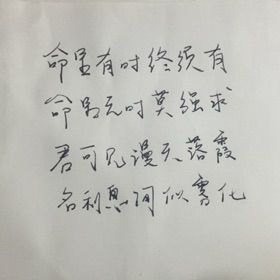 命里有时终须有
命里无时莫强求
君可见漫天落霞
名利息间似雾化